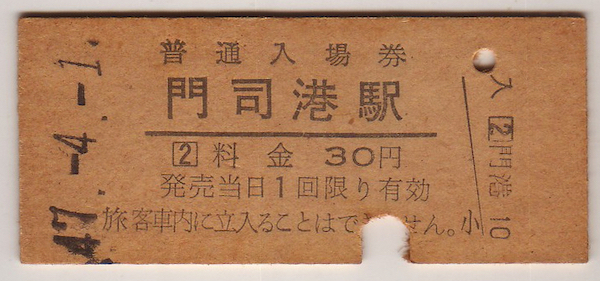 47.-4.-1.
普通入場券
門司港駅
2 料金 30円
発売当日1回限り有効
旅客車内に立入ることはで せん。
小
入 2 門港 10